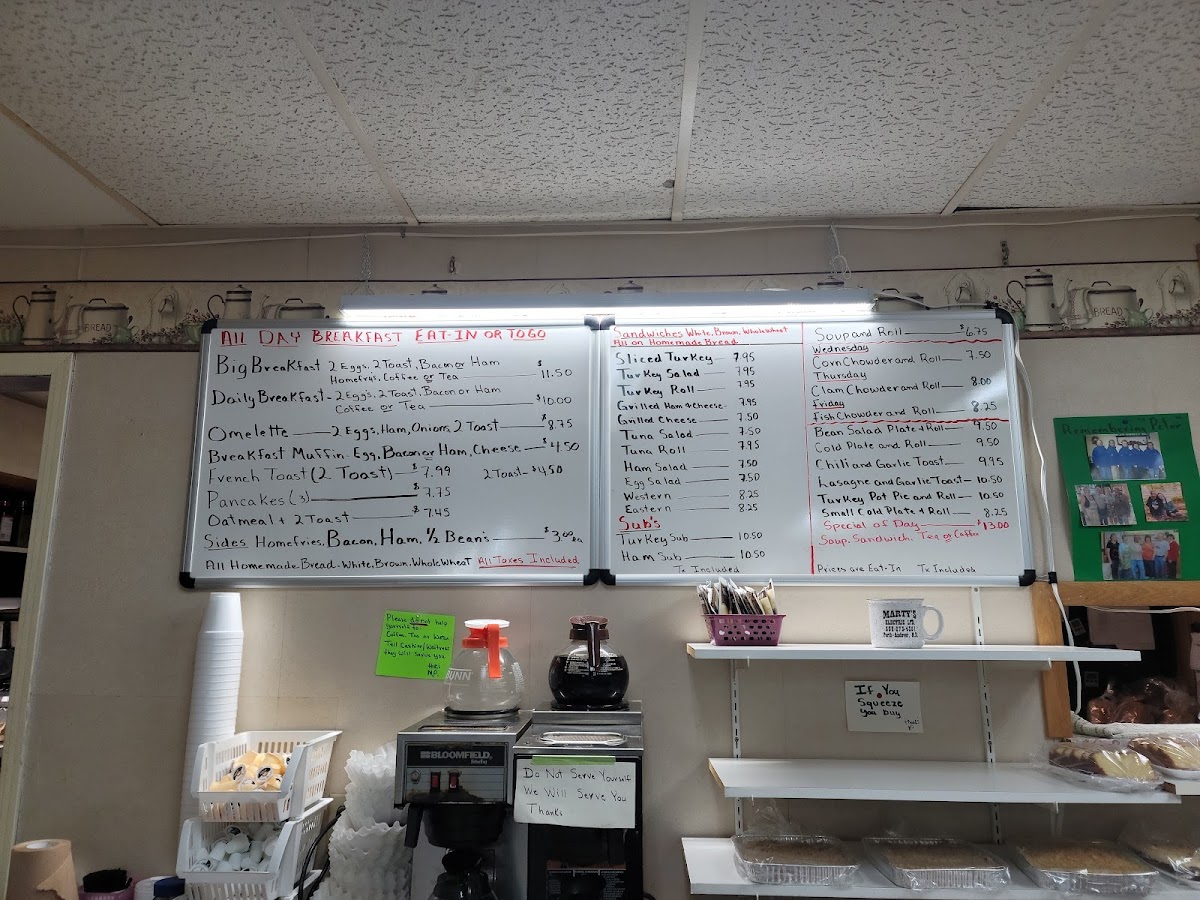 ALL DAY BREAKFAST EAT-IN OR TOGO
Big Breakfast 2 Eggs, 2 Toast, Bacon or Ham
Homefrys, Coffee or Tea $11.50
Daily Breakfast - 2 Eggs, 2 Toast, Bacon or Ham
Coffee or Tea $10.00
Omelette 2 Eggs, Ham, Onions, 2 Toast $8.75
Breakfast Muffin Egg, Bacon or Ham, Cheese $4.50
French Toast (2 Toast) $7.99 2 Toast - $4.50
Pancakes (3) $7.75
Oatmeal + 2 Toast $7.45
Sides Homefries, Bacon, Ham, 1/2 Beans $3.00 ea
All Homemade Bread - White, Brown, Whole Wheat All Taxes Included
Sandwiches White, Brown, Whole Wheat
All on Homemade Bread
Sliced Turkey 7.95
Turkey Salad 7.95
Turkey Roll 7.95
Grilled Ham & Cheese 7.95
Grilled Cheese 7.50
Tuna Salad 7.50
Tuna Roll 7.95
Ham Salad 7.50
Egg Salad 7.50
Western 8.25
Eastern 8.25
Sub's
Turkey Sub 10.50
Ham Sub 10.50
Tx Included
Soup and Roll $6.75
Wednesday
Corn Chowder and Roll 7.50
Thursday
Clam Chowder and Roll 8.00
Friday
Fish Chowder and Roll 8.25
Bean Salad Plate & Roll 9.50
Cold Plate and Roll 9.50
Chili and Garlic Toast 9.95
Lasagne and Garlic Toast 10.50
Turkey Pot Pie and Roll 10.50
Small Cold Plate & Roll 8.25
Special of Day $13.00
Soup, Sandwich, Tea or Coffee
Prices are Eat-In Tx Included
BREAD
BREAD
Remembering Peter
Please do not help
yourself to
Coffee, Tea or Water
Tell Cashier/Waitress
they will serve you
BUNN
BLOOMFIELD
Do Not Serve Yourself
We Will Serve You
Thanks
MARTY'S
ELECTRIC LTD.
Perth-Andover, N.B.
If You
Squeeze
you buy